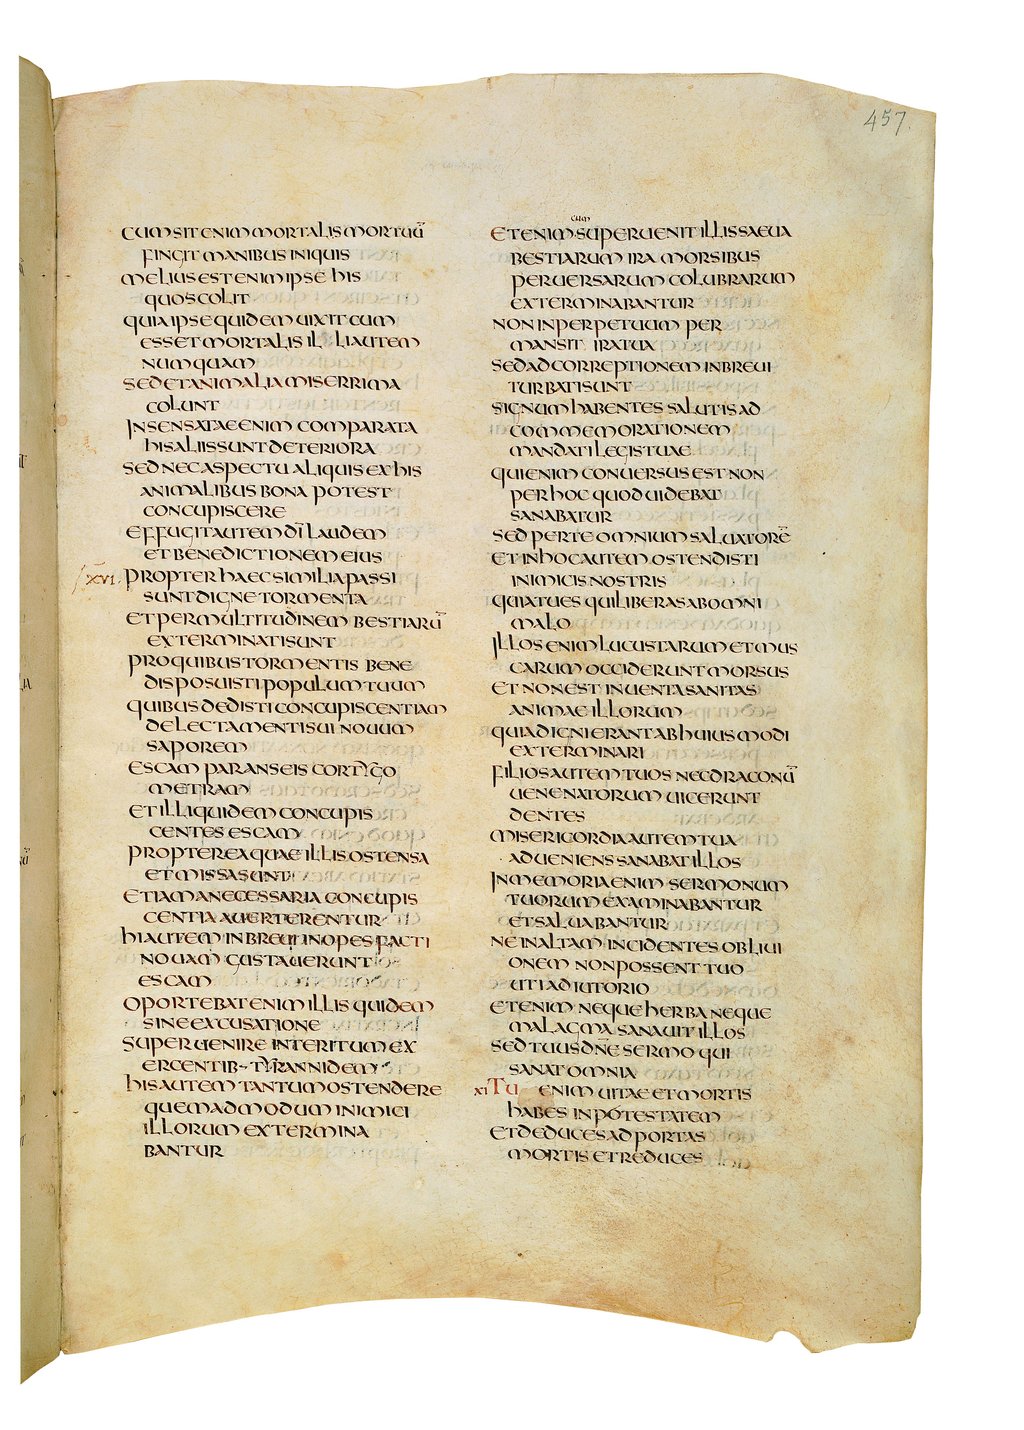 457.
CUM SIT ENIM MORTALIS MORTUŪ
FINGIT MANIBUS INIQUIS
MELIUS EST ENIM IPSE HIS
QUOS COLIT
QUIA IPSE QUIDEM UIXIT CUM
ESSET MORTALIS IL LI AUTEM
NUMQUAM
SED ET ANIMALIA MISERRIMA
COLUNT
INSENSATA E ENIM COMPARATA
HIS ALIIS SUNT DETERIORA
SED NEC ASPECTU ALIQUIS EX HIS
ANIMALIBUS BONA POTEST
CONCUPISCERE
EFFUGIT AUTEM DĪ LAUDEM
ET BENEDICTIONEM EIUS
XVI. PROPTER HAEC SIMILIA PASSI
SUNT DIGNE TORMENTA
ET PER MULTITUDINEM BESTIARŪ
EXTERMINATI SUNT
PRO QUIBUS TORMENTIS BENE
DISPOSUISTI POPULUM TUUM
QUIBUS DEDISTI CONCUPISCENTIAM
DELECTAMENTI SUI NOUUM
SAPOREM
ESCAM PARANS EIS CORTYGO
METRAM
ET ILLI QUIDEM CONCUPIS
CENTES ESCAM
PROPTER EA QUAE ILLIS OSTENSA
ET MISSA SUNT
ETIAM A NECESSARIA CONCUPIS
CENTIA AUERTERENTUR
HI AUTEM IN BREUI INOPES FACTI
NOUAM GUSTAUERUNT
ESCAM
OPORTEBAT ENIM ILLIS QUIDEM
SINE EXCUSATIONE
SUPERUENIRE INTERITUM EX
ERCENTIB~ TYRANNIDEM
HIS AUTEM TANTUM OSTENDERE
QUEMADMODUM INIMICI
ILLORUM EXTERMINA
BANTUR
CUM
ETENIM SUPERUENIT ILLIS SAEUA
BESTIARUM IRA MORSIBUS
PERUERSARUM COLUBRARUM
EXTERMINABANTUR
NON IN PERPETUUM PER
MANSIT IRA TUA
SED AD CORREPTIONEM IN BREUI
TURBATI SUNT
SIGNUM HABENTES SALUTIS AD
COMMEMORATIONEM
MANDATI LEGIS TUAE
QUI ENIM CONUERSUS EST NON
PER HOC QUOD UIDEBAT
SANABATUR
SED PER TE OMNIUM SALUATORĒ
ET IN HOC AUTEM OSTENDISTI
INIMICIS NOSTRIS
QUIA TU ES QUI LIBERAS AB OMNI
MALO
ILLOS ENIM LUCUSTARUM ET MUS
CARUM OCCIDERUNT MORSUS
ET NON EST INUENTA SANITAS
ANIMAE ILLORUM
QUIA DIGNI ERANT AB HUIUSMODI
EXTERMINARI
FILIOS AUTEM TUOS NEC DRACONŪ
UENENATORUM UICERUNT
DENTES
MISERICORDIA AUTEM TUA
ADUENIENS SANABAT ILLOS
IN MEMORIA ENIM SERMONUM
TUORUM EXAMINABANTUR
ET SALUABANTUR
NE IN ALTAM INCIDENTES OBLIUI
ONEM NON POSSENT TUO
UTI ADIUTORIO
ETENIM NEQUE HERBA NEQUE
MALAGMA SANAUIT ILLOS
SED TUUS DN̄E SERMO QUI
SANAT OMNIA
XI TU ENIM UITAE ET MORTIS
HABES IN POTESTATEM
ET DEDUCES AD PORTAS
MORTIS ET REDUCES